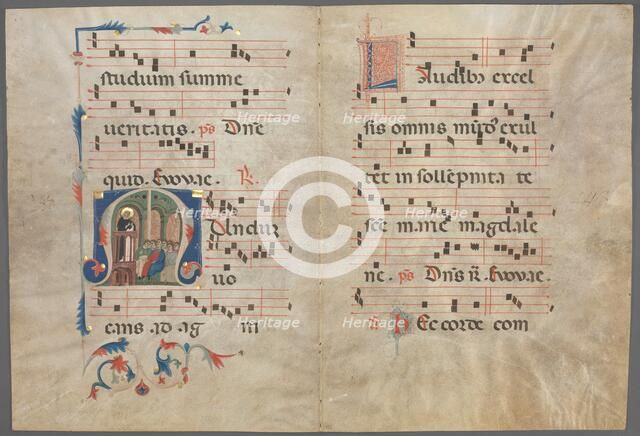 studium summe
ueritatis. ps Dne
quid. Evovae. R.
Anduz
uo
eans ad ag
Laudibz excel
sis omnis mūdꝰ exul
tet in sollēpnita te
sce marie magdale
ne. ps Dns R. Evovae.
ec corde com
Heritage
Heritage
Heritage
Heritage
Heritage
Heritage